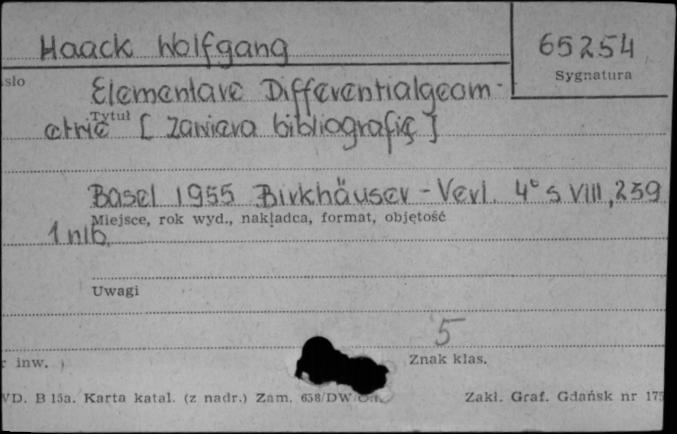 Haack Wolfgang
65254
Sygnatura
sło
Elementare Differentialgeom-
Tytuł
etrie [zawiera bibliografię]
Basel 1955 Birkhäuser-Verl. 4° s. VIII, 259
Miejsce, rok wyd., nakładca, format, objętość
1 nlb.
Uwagi
5
r inw.
Znak klas.
VD. B 15a. Karta katal. (z nadr.) Zam. 638/DW
Zakł. Graf. Gdańsk nr 175